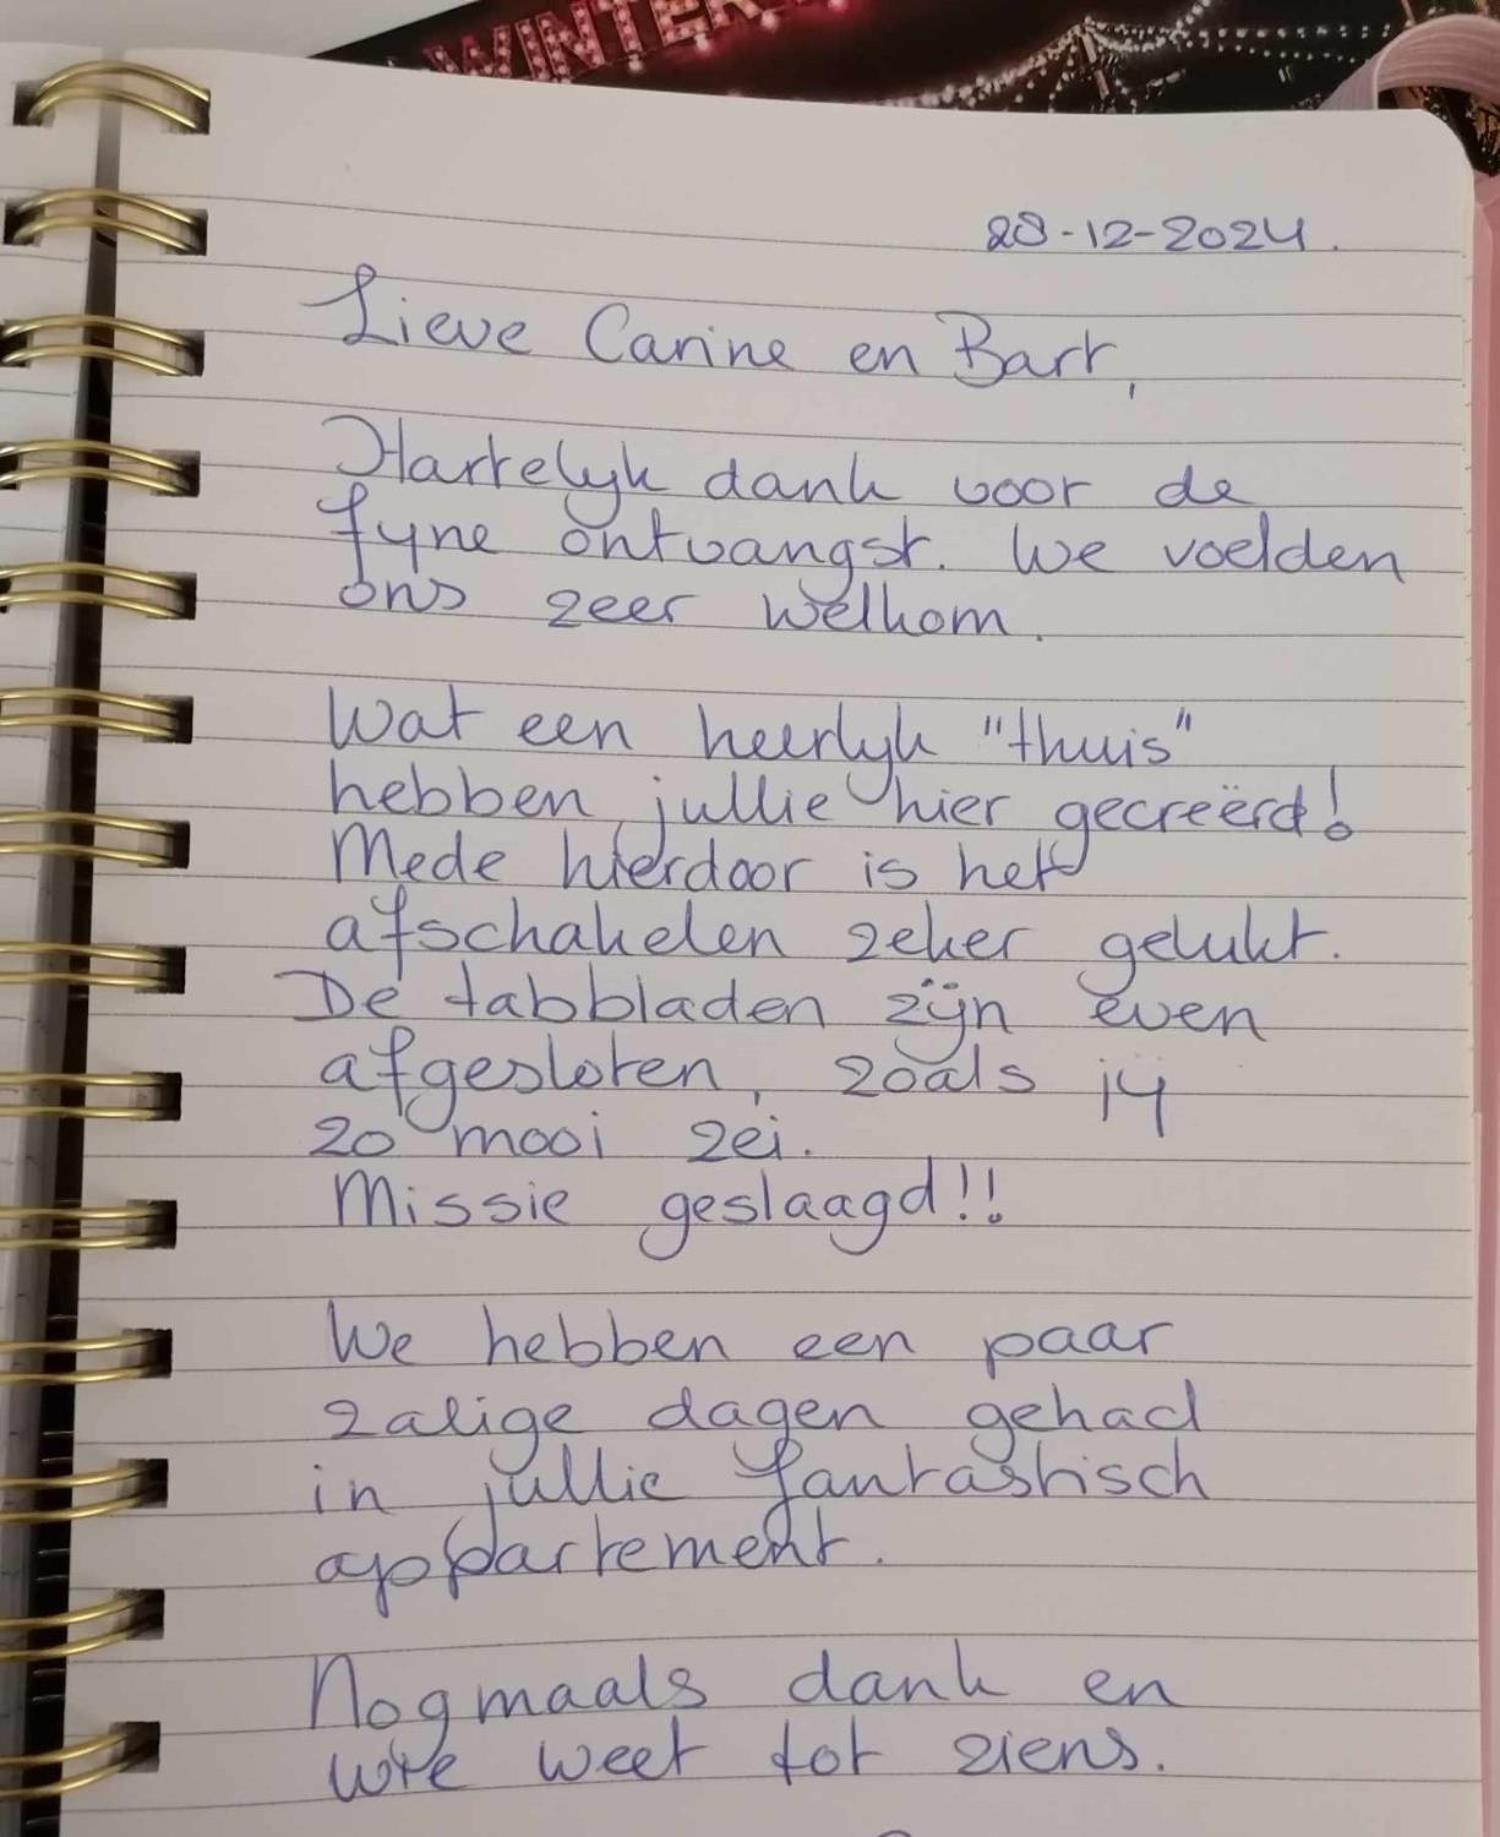 WINTER
28-12-2024.
Lieve Carine en Bart,
Hartelyk dank voor de
fyne ontvangst. We voelden
ons zeer welkom.
Wat een heerlyk "thuis"
hebben jullie hier gecreëerd!
Mede hierdoor is het
afschakelen zeker gelukt.
De tabbladen zijn even
afgesloten, zoals jij
zo mooi zei.
Missie geslaagd!!
We hebben een paar
zalige dagen gehad
in jullie fantastisch
appartement.
Nogmaals dank en
wie weet tot ziens.